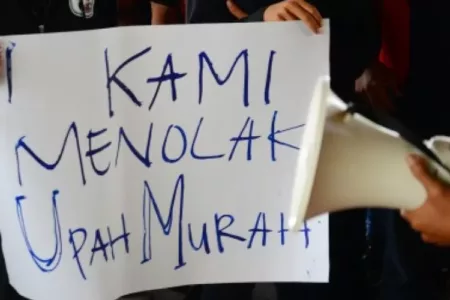 KAMI
MENOLAK
UPAH MURAH